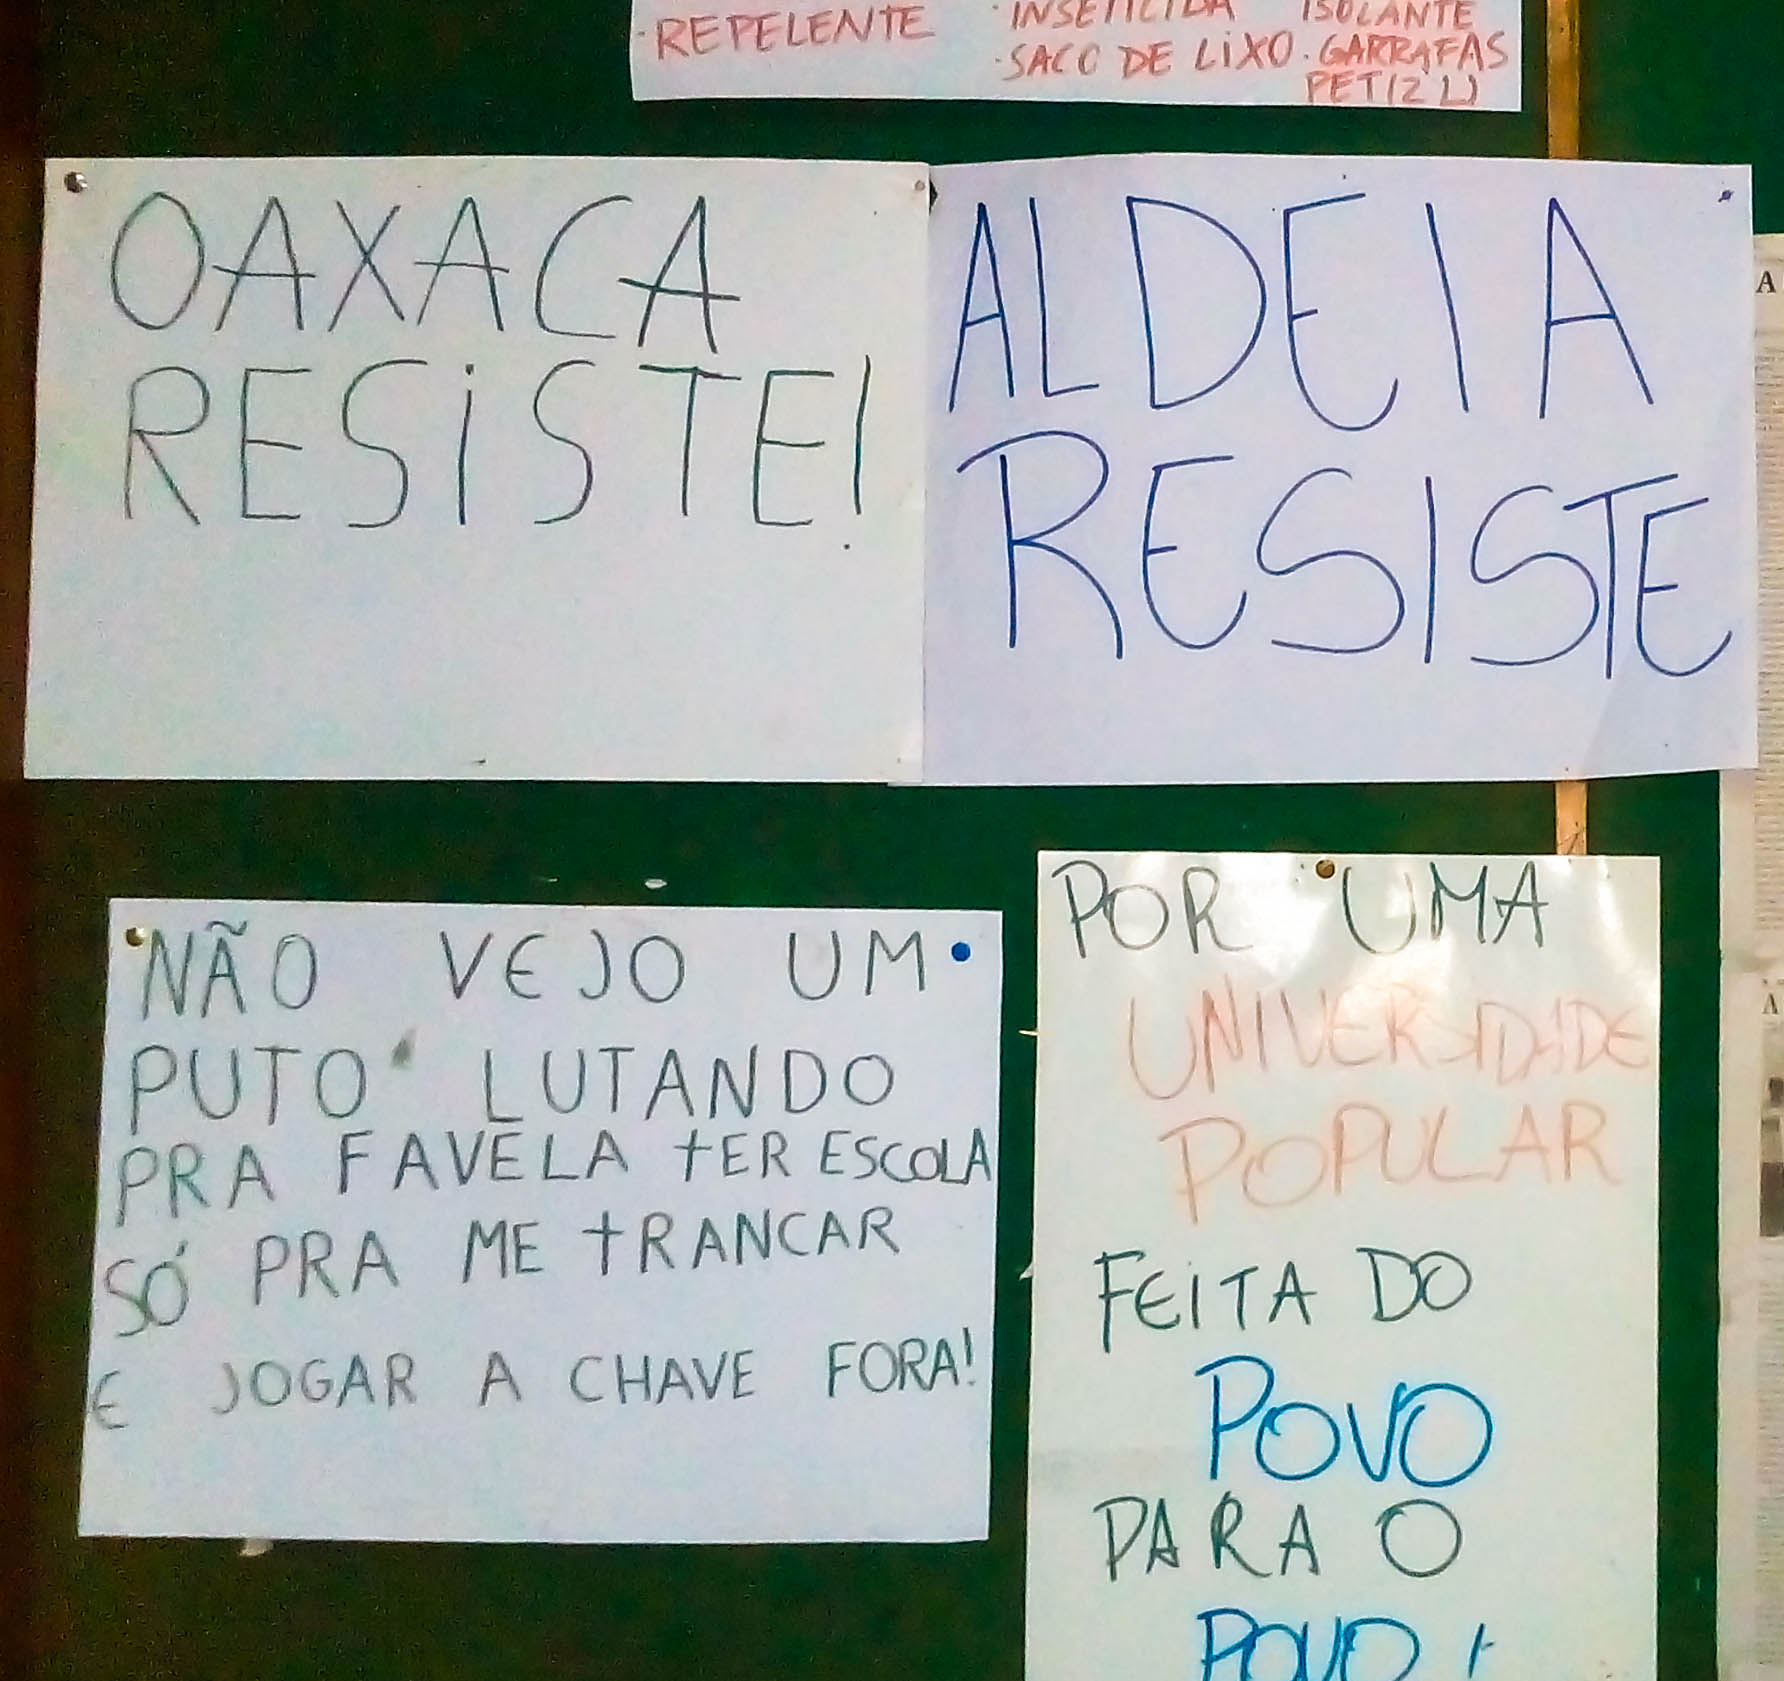 · REPELENTE
· INSETICIDA
· SACO DE LIXO
ISOLANTE
· GARRAFAS
PET (2 L)
OAXACA
RESISTE!
ALDEIA
RESISTE
NÃO VEJO UM
PUTO LUTANDO
PRA FAVELA TER ESCOLA
SÓ PRA ME TRANCAR
E JOGAR A CHAVE FORA!
POR UMA
UNIVERSIDADE
POPULAR
FEITA DO
POVO
PARA O
POVO!
A
A